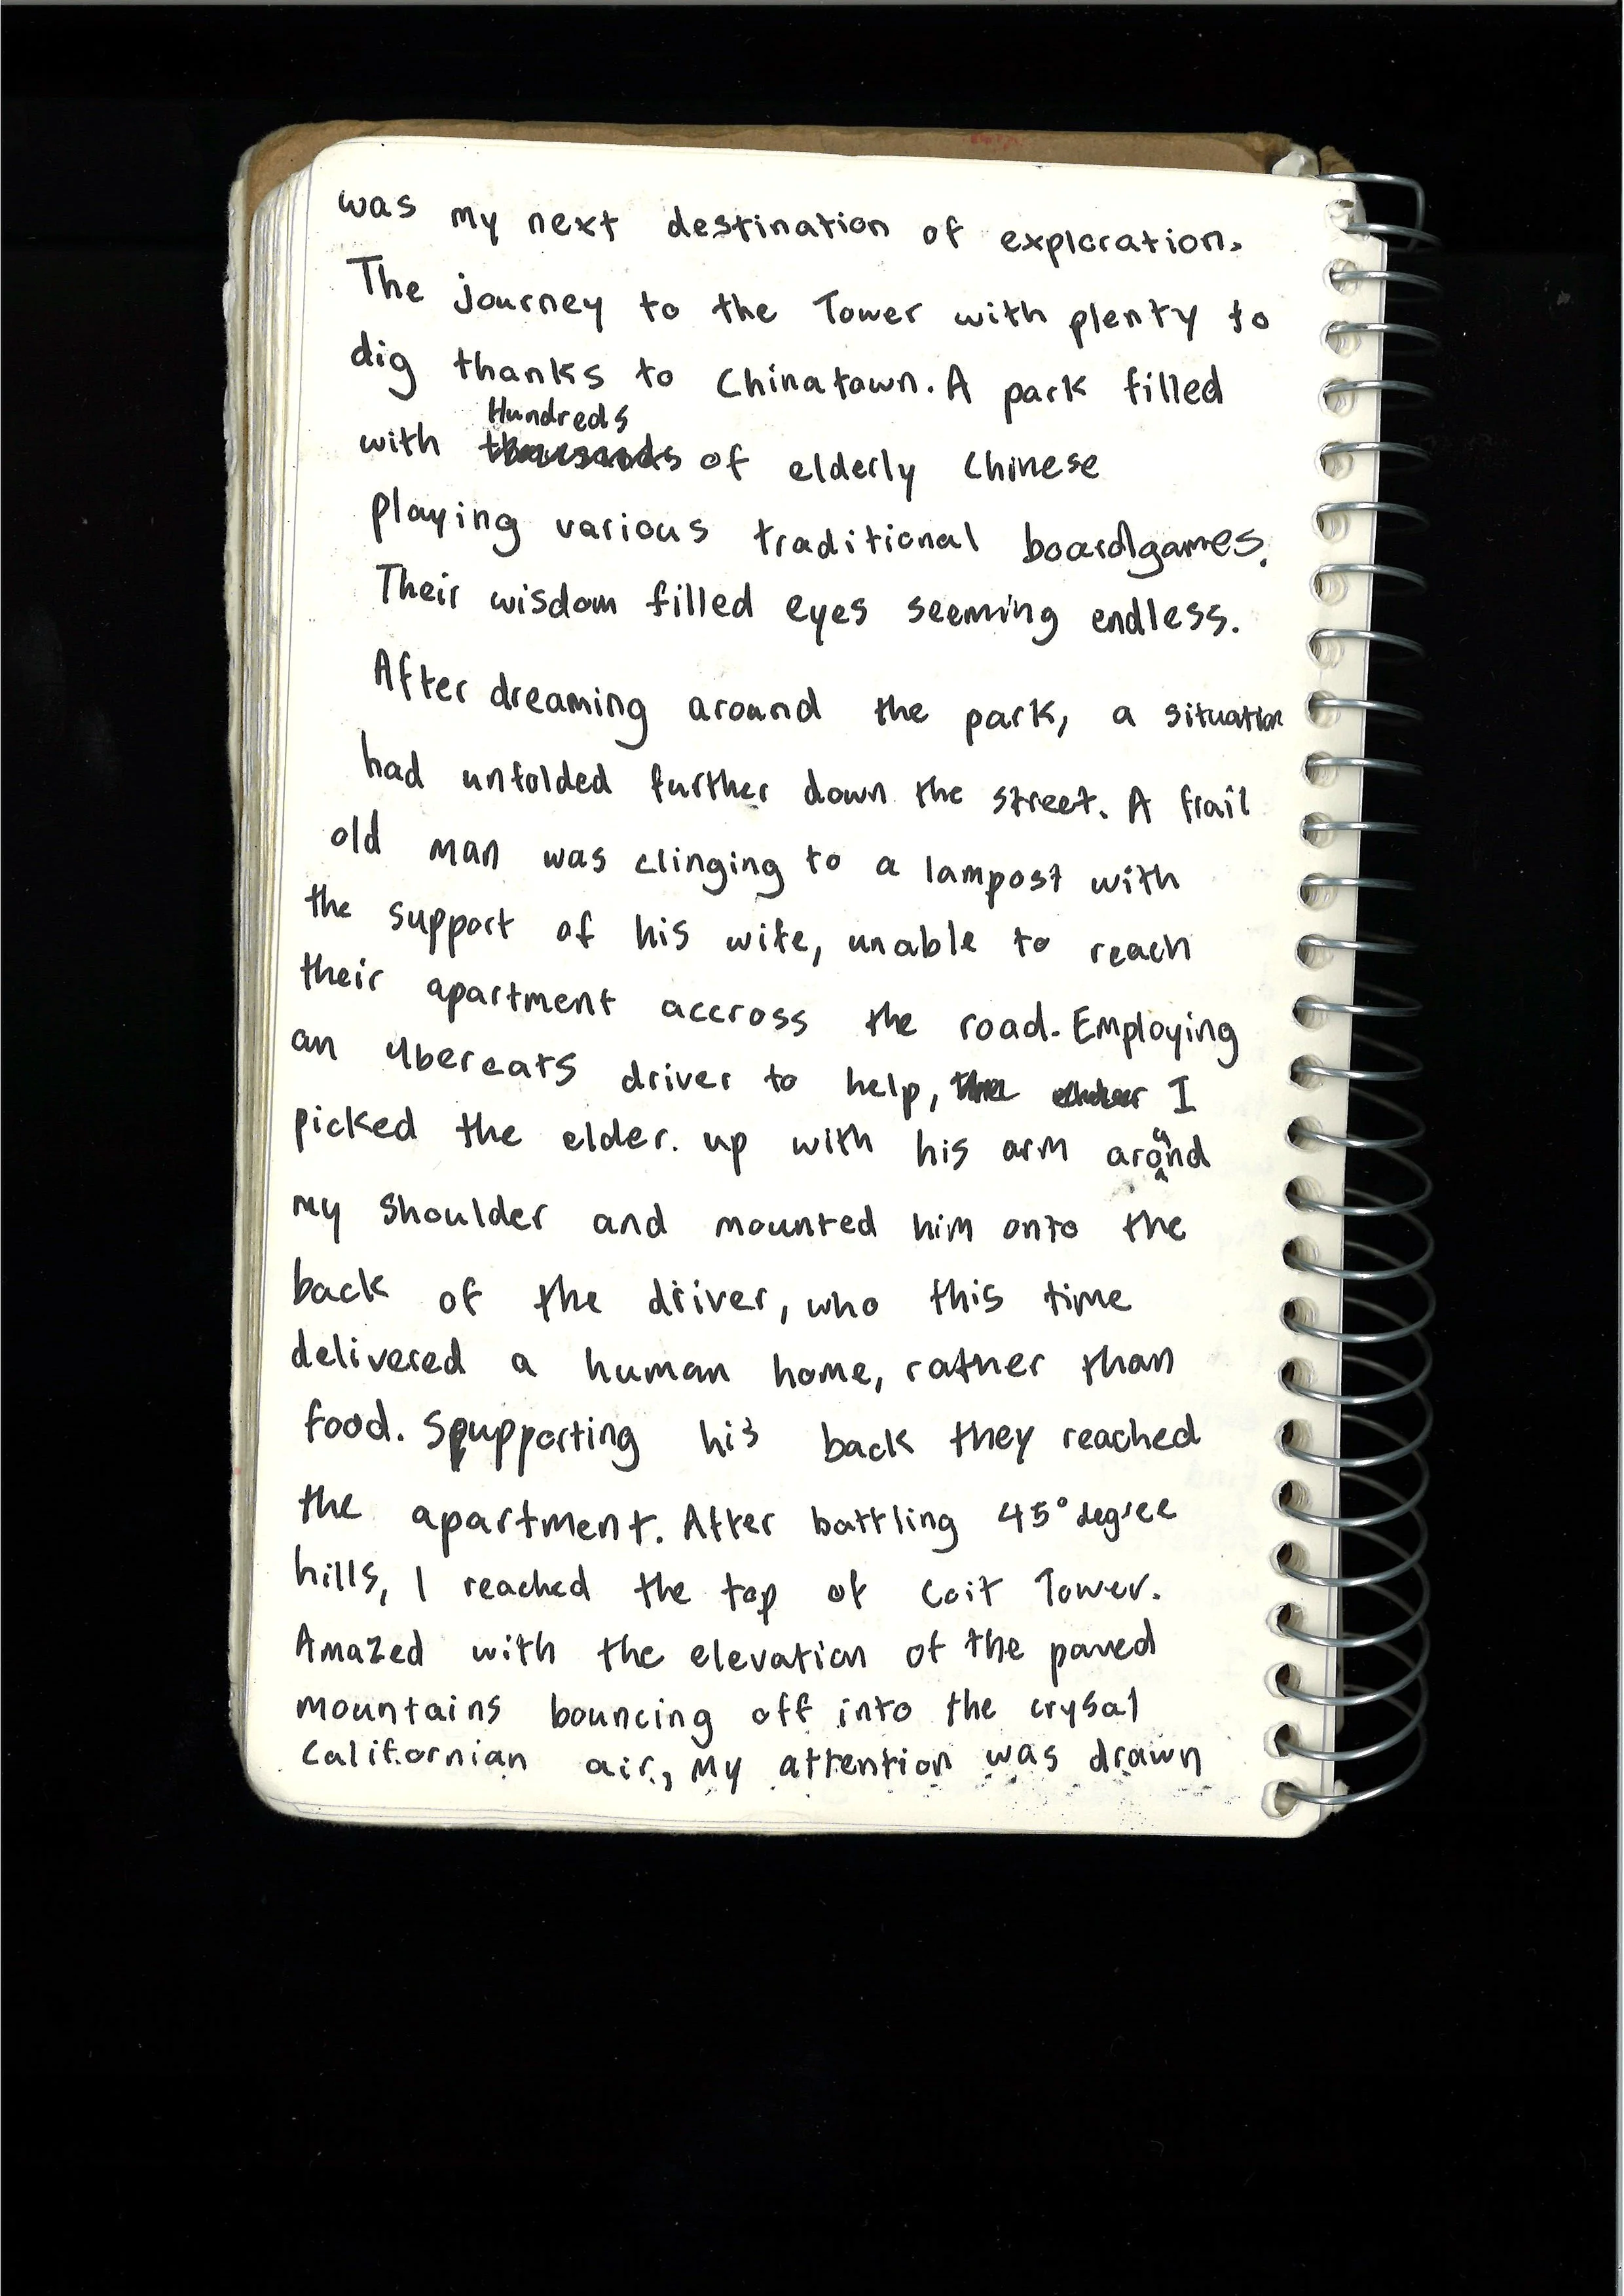 was my next destination of exploration.
The journey to the Tower with plenty to
dig thanks to Chinatown. A park filled
Hundreds
with thousands of elderly Chinese
playing various traditional boardgames.
Their wisdom filled eyes seeming endless.
After dreaming around the park, a situation
had unfolded further down the street. A frail
old man was clinging to a lampost with
the support of his wife, unable to reach
their apartment accross the road. Employing
an Ubereats driver to help, the I
picked the elder. up with his arm around
my shoulder and mounted him onto the
back of the driver, who this time
delivered a human home, rather than
food. Supporting his back they reached
the apartment. After battling 45° degree
hills, I reached the top of Coit Tower.
Amazed with the elevation of the paved
mountains bouncing off into the crysal
Californian air, my attention was drawn